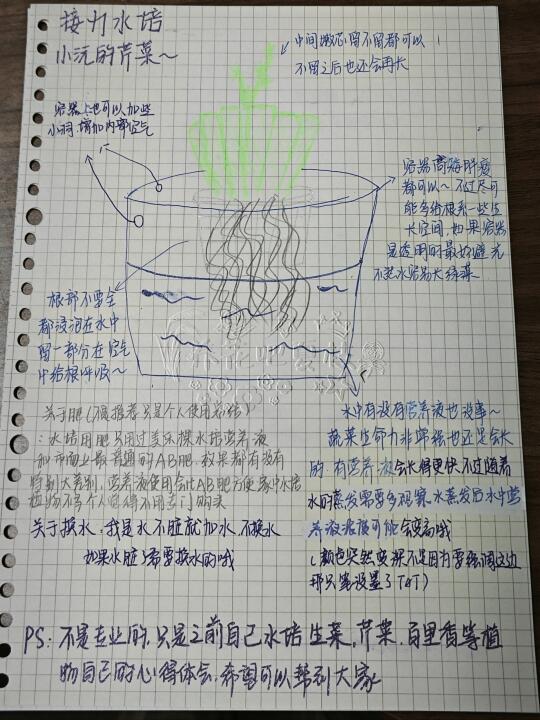 接力水培
小沅的芹菜~
中间嫩芯留不留都可以!
不留之后也还会再长
容器上也可以加些
小洞.增加内部空气
容器高矮胖瘦
都可以~不过尽可
能多给根系一些生
长空间,如果容器
是透明的最好避光
不然水容易长绿藻
根部不要全
都浸泡在水中
留一部分在空气
中给根呼吸~
关于肥(不是推荐只是个人使用总结)
:水培用肥只用过美乐棵水培营养液
和市面上最普通的AB肥.效果都有没有
特别大差别,营养液使用会比AB肥方便.家中水培
植物不多个人觉得不用专门购买
关于换水.我是水不脏就加水.不换水
如果水脏了需要换水的哦
水中有没有营养液也没事~
蔬菜生命力非常强也还是会长
的.有营养液会长得更快不过随着
水的蒸发需要多观察.水蒸发后水中营
养液浓度可能会变高哦
(颜色突然变深不是因为要强调这边
那只笔没墨了TAT)
PS:不是专业的.只是之前自己水培生菜.芹菜.百里香等植
物自己的心得体会.希望可以帮到大家